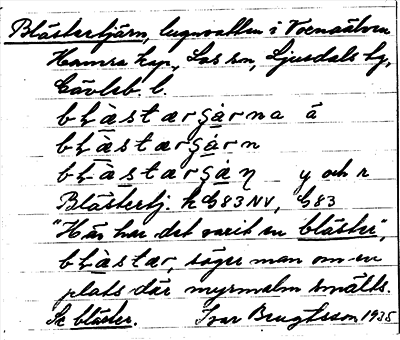 Blästertjärn, lugnvatten i Voxnaälven
Hamra kap., Los sn, Ljusdals tg,
Gävleb. l.
bḷàstærjä̀rna å
bḷàstærjä̀rn
bḷàstarjä̀ṇ y och r
Blästertj. k G83NV, G83
"Här har det varit en bläster",
bḷàstær, säger man om en
plats där myrmalm smälts.
Se bläster. Ivar Bengtsson 1935